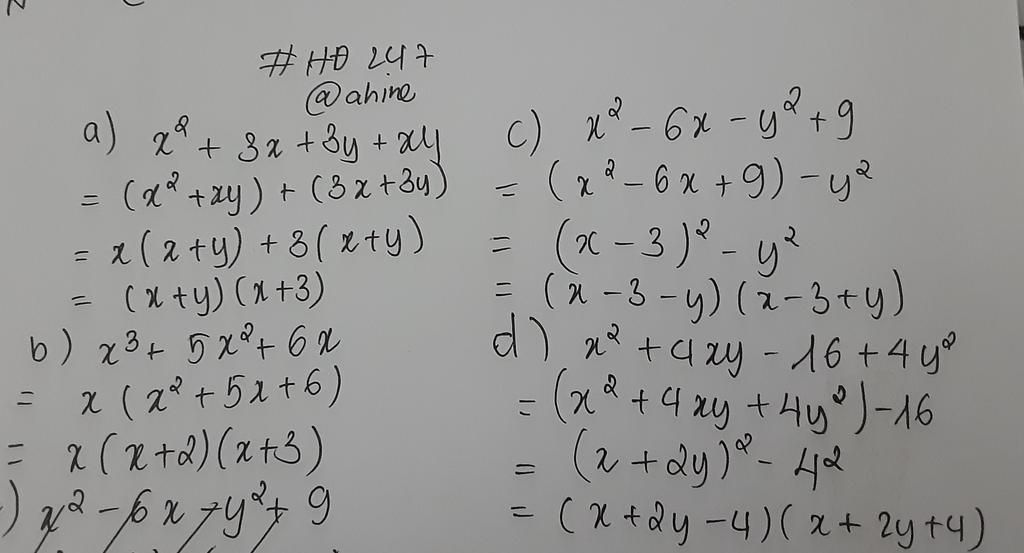 #HĐ 247
@ahine
a) x² + 3x + 3y + xy
= (x² + xy) + (3x + 3y)
= x(x + y) + 3(x + y)
= (x + y)(x + 3)
b) x³ + 5x² + 6x
= x(x² + 5x + 6)
= x(x + 2)(x + 3)
) x² - 6x - y² + 9
c) x² - 6x - y² + 9
= (x² - 6x + 9) - y²
= (x - 3)² - y²
= (x - 3 - y)(x - 3 + y)
d) x² + 4xy - 16 + 4y²
= (x² + 4xy + 4y²) - 16
= (x + 2y)² - 4²
= (x + 2y - 4)(x + 2y + 4)